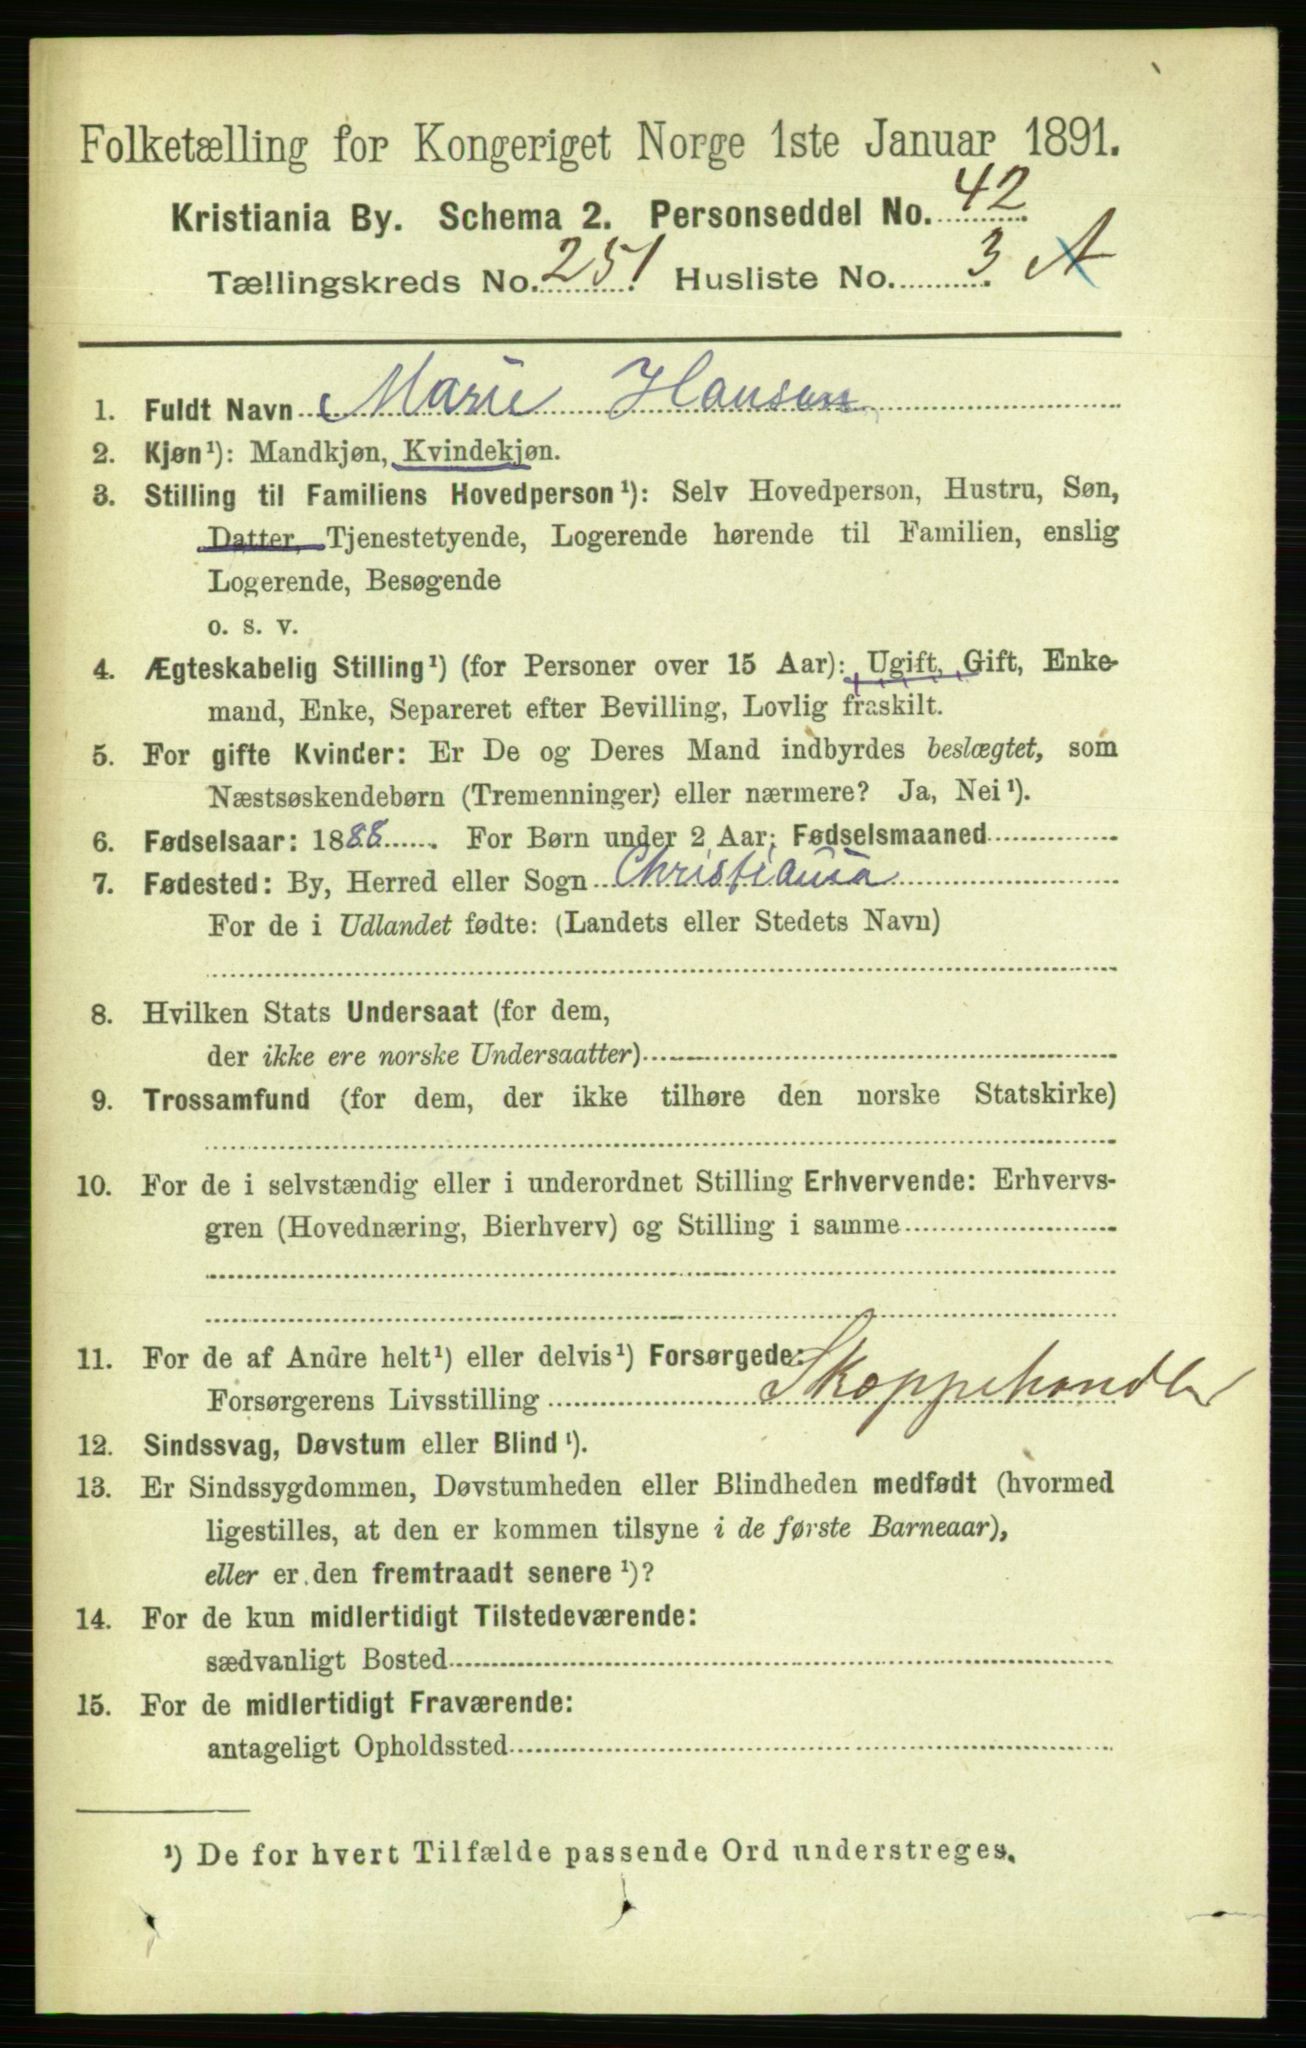 Folketælling for Kongeriget Norge 1ste Januar 1891.
Kristiania By. Schema 2. Personseddel No. 42
Tællingskreds No. 251 Husliste No. 3 A
1. Fuldt Navn Marie Hansen
2. Kjøn¹): Mandkjøn, Kvindekjøn.
3. Stilling til Familiens Hovedperson¹): Selv Hovedperson, Hustru, Søn,
Datter, Tjenestetyende, Logerende hørende til Familien, enslig
Logerende, Besøgende
o. s. v.
4. Ægteskabelig Stilling¹) (for Personer over 15 Aar): Ugift, Gift, Enke-
mand, Enke, Separeret efter Bevilling, Lovlig fraskilt.
5. For gifte Kvinder: Er De og Deres Mand indbyrdes beslægtet, som
Næstsøskendebørn (Tremenninger) eller nærmere? Ja, Nei¹).
6. Fødselsaar: 1888. For Børn under 2 Aar: Fødselsmaaned
7. Fødested: By, Herred eller Sogn Christiania
For de i Udlandet fødte: (Landets eller Stedets Navn)
8. Hvilken Stats Undersaat (for dem,
der ikke ere norske Undersaatter)
9. Trossamfund (for dem, der ikke tilhøre den norske Statskirke)
10. For de i selvstændig eller i underordnet Stilling Erhvervende: Erhvervs-
gren (Hovednæring, Bierhverv) og Stilling i samme
11. For de af Andre helt¹) eller delvis¹) Forsørgede:
Forsørgerens Livsstilling Skoppehandler
12. Sindssvag, Døvstum eller Blind¹).
13. Er Sindssygdommen, Døvstumheden eller Blindheden medfødt (hvormed
ligestilles, at den er kommen tilsyne i de første Barneaar),
eller er den fremtraadt senere¹)?
14. For de kun midlertidigt Tilstedeværende:
sædvanligt Bosted
15. For de midlertidigt Fraværende:
antageligt Opholdssted
¹) De for hvert Tilfælde passende Ord understreges.